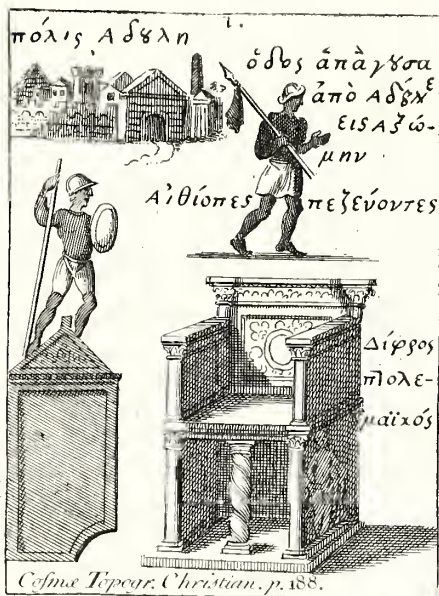 1.
πόλις Αδȣλη
ὁδος ἁπὰγυσα
ἀπὸ Αδȣλε
εις Αξώ-
μην
Αἰθίοπες πεζεύοντες
Δίφρος
πτολε-
μαϊκός
Coſmæ Topogr. Christian. p. 188.